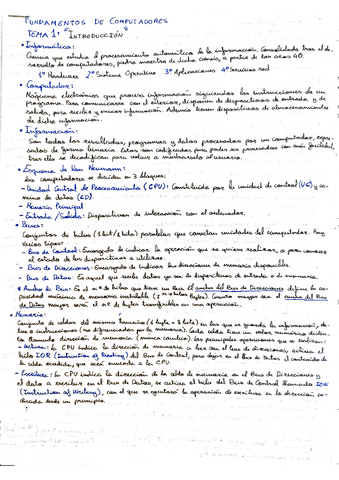 FUNDAMENTOS DE COMPUTADORES
TEMA 1: "INTRODUCCIÓN"
• Informática:
Ciencia que estudia el procesamiento automático de la información. Consolidada tras el de-
sarrollo de computadores, piedra maestra de dicha ciencia, a partir de los años 40.
1º Hardware 2º Sistema Operativo 3º Aplicaciones 4º Servicios red
• Computador:
Máquina electrónica que procesa información siguiendo las instrucciones de un
programa. Para comunicarse con el exterior, disponen de dispositivos de entrada y de
salida, para recibir y enviar información. Además tienen dispositivos de almacenamiento
de dicha información.
• Información:
Son todos los resultados, programas y datos procesados por un computador, expre-
sados de forma binaria. Estos son codificados para poder ser procesados con más facilidad,
tras ello se decodifican para volver a mostrárselo al usuario.
• Esquema de Von Neumann:
Los computadores se dividen en 3 bloques:
- Unidad Central de Procesamiento (CPU): Constituida por la unidad de control (UC) y ca-
mino de datos (CD).
- Memoria Principal
- Entrada / Salida: Dispositivos de interacción con el ordenador.
• Buses:
Conjuntos de hilos (1 bit / 1 hilo) paralelos que conectan unidades del computador. Hay
varios tipos:
- Bus de Control: Encargado de indicar la operación que se quiere realizar, o para conocer
el estado de los dispositivos a utilizar.
- Bus de Direcciones: Encargado de indicar las direcciones de memoria disponibles.
- Bus de Datos: Es aquel que recibe datos ya sea de dispositivos de entrada o de memoria.
* Ancho de Bus: Es el nº de hilos que tiene un Bus. El ancho del Bus de Direcciones define la ca-
pacidad máxima de memoria instalable (2ⁿ hilos bytes). Cuanto mayor sea el ancho del Bus
de Datos mayor será el nº de bytes transferibles en una operación.
• Memoria:
Conjunto de celdas del mismo tamaño (1 byte = 8 bits) en las que se guarda la información, da-
tos e instrucciones (no diferenciados por la memoria). Cada celda tiene un valor numérico distin-
to llamado dirección de memoria (nunca cambia). Las principales operaciones que se realizan:
- Lectura: La CPU indica la dirección de memoria a leer con el bus de direcciones, activa el
hilo IOR (Instruction of Reading) del Bus de Control, para dejar en el Bus de Datos el contenido de
la celda accedida, que será enviado a la CPU.
- Escritura: La CPU indica la dirección de la celda de memoria en el Bus de Direcciones y
el dato a escribir en el Bus de Datos, se activa el hilo del Bus de Control llamado IOW
(Instruction of Writing), con el que se ejecutará la operación de escritura en la dirección in-
dicada desde un principio.